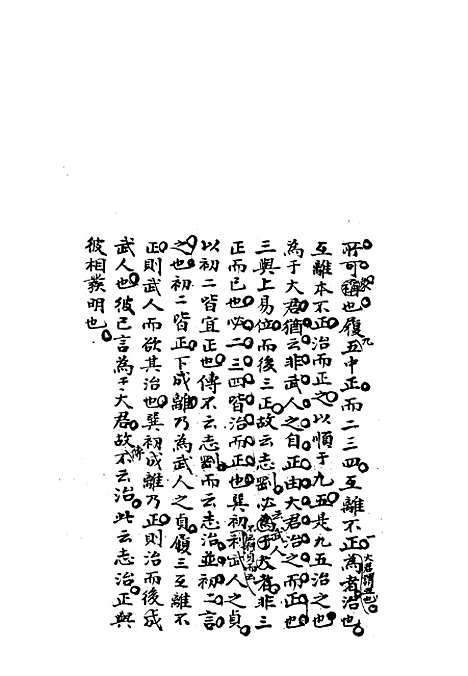 所可稱也履九五中正而二三四互離不正為者治也
互離本不正治而正之以順于九五是九五治之也
為于大君猶云非武人之自正由大君治之而正也
三與上易位而後三正故云志剛必為于大者非三
正而已也必二三四皆治而正也巽初利武人之貞
以初二皆宜正也傳不云志剛而云志治並初二言
之也初二皆正下成離乃為武人之貞履三互離不
正則武人而欲其治也巽初成離乃正則治而後成
武人也彼已言為于大君故不云治此云志治正與
彼相發明也